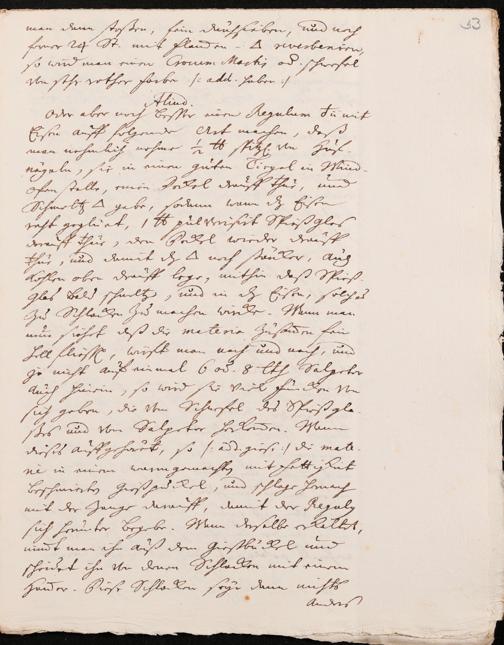 53
man dann stoßen, fein durchsieben, und noch
ferner 24 St. mit flammen-△ reverberiren,
so wird man einen Crocum Martis od. schwefel
von sehr rother farbe /: add. haben :/
Aliud.
Oder aber noch besser einen Regulum ♁ii mit
Eisen auff folgende Art machen, daß
man nehmlich nehme ½ ℔ spitzen von Huf-
nägeln, sie in einen guten Tiegel in Wind-
ofen stelle, einen Deckel drauff thue, und
Schmeltz △ gebe, sodann wenn dz Eisen
roht geglüet, 1 ℔ pulverisirt Spießglas
drauff thue, den Deckel wieder drauff
thue, und damit dz △ noch stärcker, auch
Kohlen oben drauff lege, mithin daß Spieß-
glas bald schmeltze, und in dz Eisen, solches
zu Schlacken zu machen würcke. Wann man
nun siehet daß die materia zusammen fein
hell fließe, wirfft man nach und nach, und
ja nicht auf einmal 6 od. 8 lth Salpeter
auch hinein, so wird sie viel funcken von
sich geben, die vom Schwefel des Spießgla-
ses und vom Salpeter herkommen. Wenn
dieses auffgehört, so /: add. giese :/ die mate-
rie in einen warmgemachten mit fettigkeit
beschmierten Gießpuckel, und schlage hernach
mit der Zange darauff, damit der Regulus
sich herunter begebe. Wenn derselbe erkaltet,
nimt man ihn auß dem Gießbuckel und
scheidet ihn von denen Schlacken mit einem
Hammer. Diese Schlacken seyn dann nichts
anders